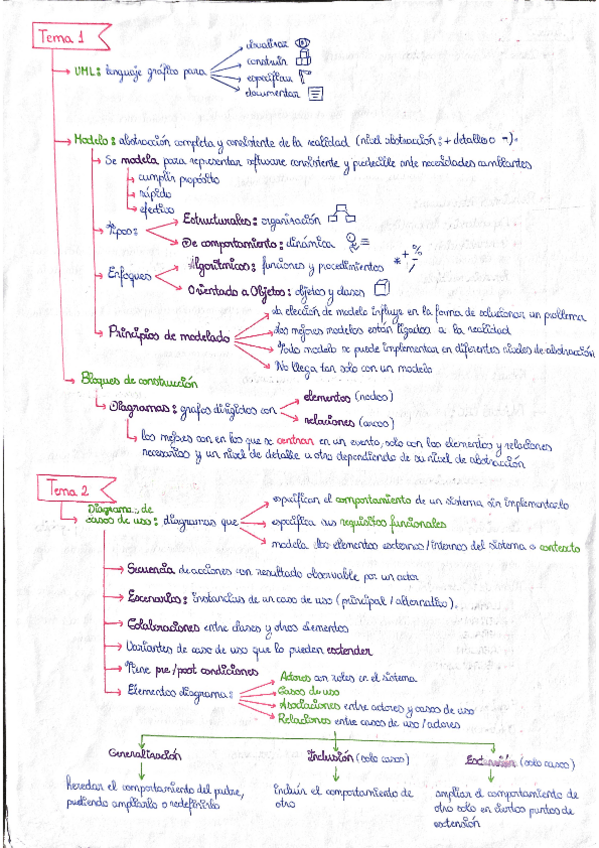 Tema 1
UML: lenguaje gráfico para
visualizar
construir
especificar
documentar
Modelo: abstracción completa y consistente de la realidad (nivel abstracción: + detalle o -).
Se modela para representar software consistente y predecible ante necesidades cambiantes
cumplir propósito
rápido
efectivo
Tipos:
Estructurales: organización
De comportamiento: dinámica
Enfoques
Algorítmicos: funciones y procedimientos
* + % /
Orientado a Objetos: objetos y clases
Principios de modelado
La elección de modelo influye en la forma de solucionar un problema
Los mejores modelos están ligados a la realidad
Todo modelo se puede implementar en diferentes niveles de abstracción
No llega tan solo con un modelo
Bloques de construcción
Diagramas: grafos dirigidos con
elementos (nodos)
relaciones (arcos)
los mejores son en los que se centran en un evento, solo con los elementos y relaciones
necesarios y un nivel de detalle u otro dependiendo de su nivel de abstracción
Tema 2
Diagramas de
casos de uso: diagramas que
especifican el comportamiento de un sistema sin implementarlo
especifica sus requisitos funcionales
modela los elementos externos/internos del sistema o contexto
Secuencia de acciones con resultado observable por un actor
Escenarios: instancias de un caso de uso (principal / alternativo).
Colaboraciones entre clases y otros elementos
Variantes de caso de uso que lo pueden extender
Tiene pre/post condiciones
Elementos diagrama:
Actores con roles en el sistema
Casos de uso
Asociaciones entre actores y casos de uso
Relaciones entre casos de uso / actores
Generalización
Inclusión (solo casos)
Extensión (solo casos)
heredar el comportamiento del padre,
pudiendo ampliarlo o redefinirlo
incluir el comportamiento de
otro
ampliar el comportamiento de
otro solo en ciertos puntos de
extensión